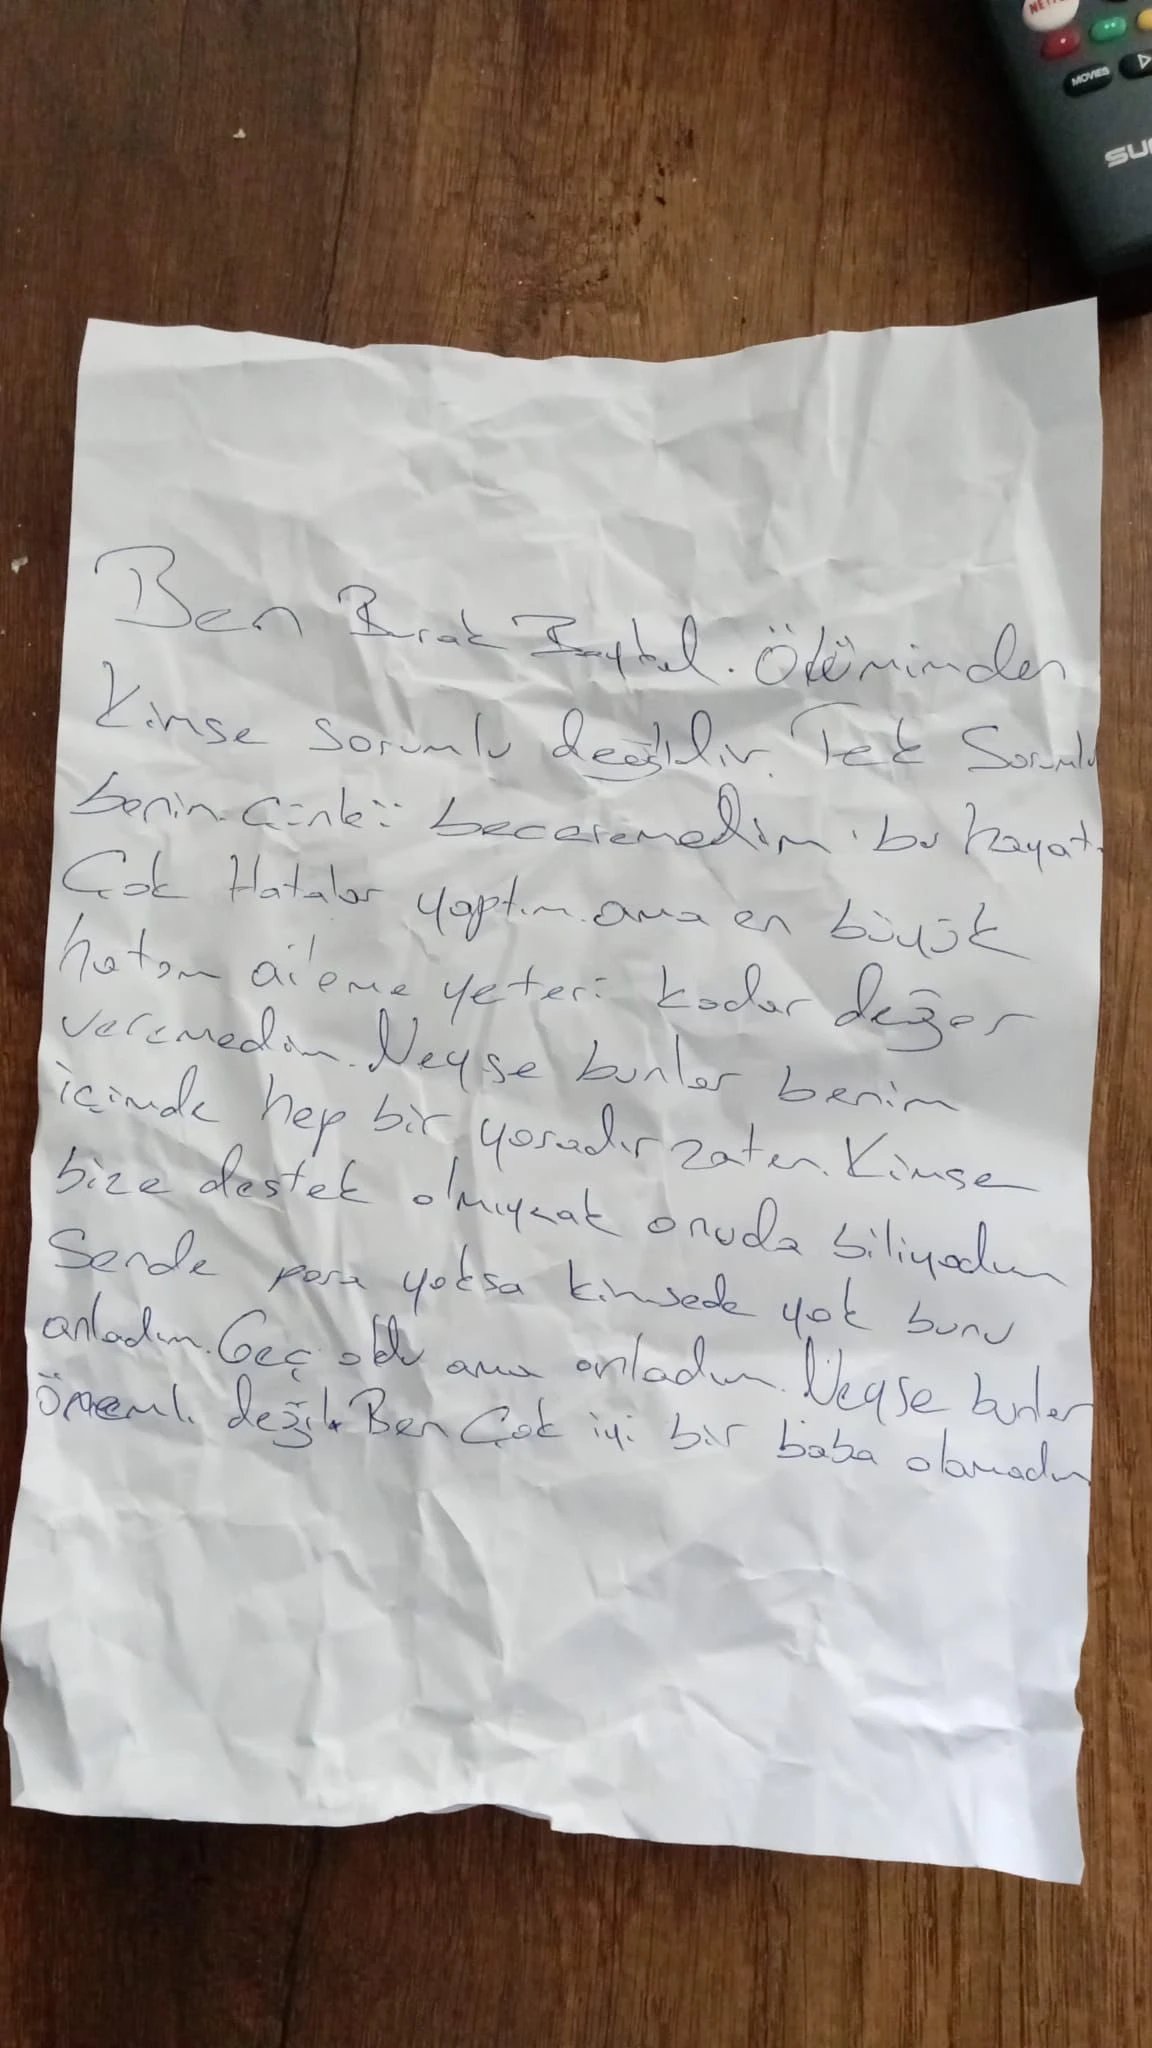 NETFLIX
MOVIES
Ben Burak Baykal. Ölümümden
Kimse sorumlu değildir. Tek Sorumlu
benim. Çünkü beceremedim bu hayatı.
Çok Hatalar yaptım. ama en büyük
hatam aileme yeteri kadar değer
veremedim. Neyse bunlar benim
içimde hep bir yaradır zaten. Kimse
bize destek olmıycak onuda biliyodum
Sende para yoksa kimsede yok bunu
anladım. Geç oldu ama anladım. Neyse bunlar
önemli değil. Ben Çok iyi bir baba olamadım